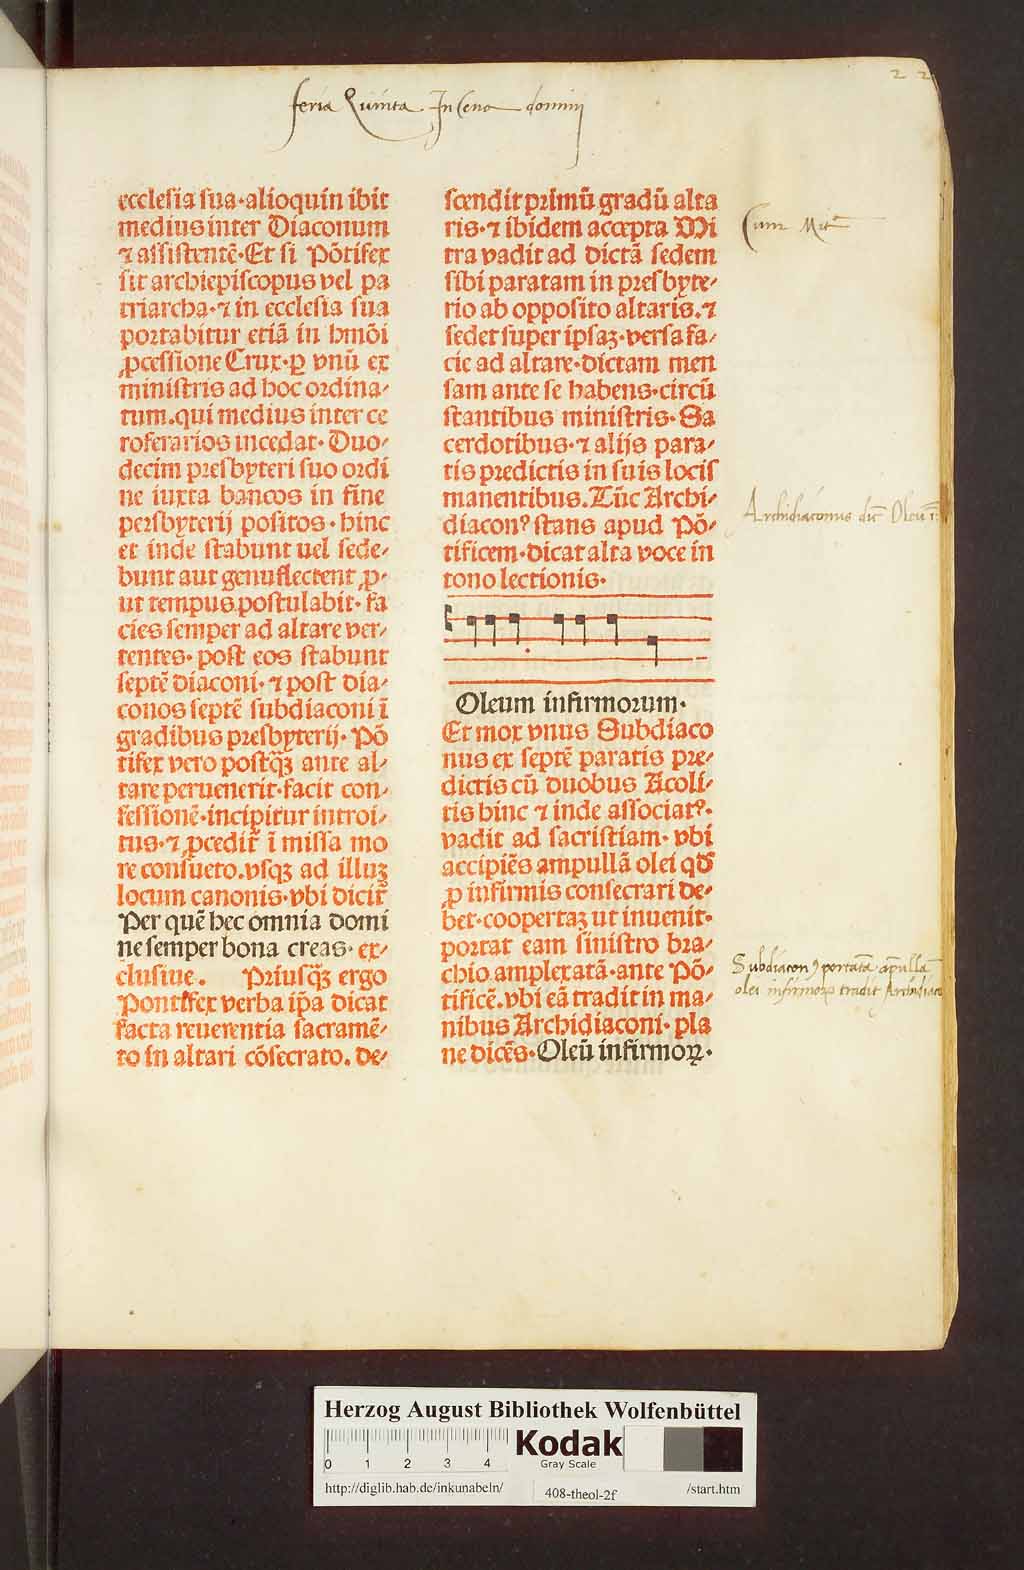 22
feria Quinta In Cena domini
ecclesia sua·alioquin ibit
medius inter Diaconum
⁊ assistentē·Et si Pōtifex
sit archiepiscopus vel pa
triarcha·⁊ in ecclesia sua
portabitur etiā in hmōi
ꝓcessione Crux·ꝑ vnū ex
ministris ad hoc ordina-
tum.qui medius inter ce
roferarios incedat· Duo-
decim presbyteri suo ordi
ne iuxta bancos in fine
persbyterij positos·hinc
et inde stabunt uel sede-
bunt aut genuflectent ꝓ-
ut tempus postulabit·fa
cies semper ad altare ver-
tentes·post eos stabunt
septē diaconi·⁊ post dia-
conos septē subdiaconi ī
gradibus presbyterij·Pō
tifex vero postqꝫ ante al-
tare peruenerit·facit con-
fessionē·incipitur introi-
tus·⁊ ꝓcedit̄ ī missa mo
re consueto.vsqꝫ ad illuꝫ
locum canonis·vbi dicit̄
Per quē hec omnia domi
ne semper bona creas·ex-
clusiue. Priusqꝫ ergo
Pontifex verba ip̄a dicat
facta reuerentia sacramē-
to in altari cōsecrato.de-
scendit primū gradū alta
ris·⁊ ibidem accepta Mi
tra vadit ad dictā sedem
sibi paratam in presbyte-
rio ab opposito altaris.⁊
sedet super ipsaꝫ·versa fa-
cie ad altare·dictam men
sam ante se habens·circū
stantibus ministris·Sa
cerdotibus·⁊ alijs para-
tis predictis in suis locis
manentibus.Tūc Archi-
diaconꝰ stans apud Pō-
tificem·dicat alta voce in
tono lectionis·
Oleum infirmorum·
Et mox vnus Subdiaco
nus ex septē paratis pre-
dictis cū duobus Acoli-
tis hinc ⁊ inde associatꝰ·
vadit ad sacristiam·vbi
accipiēs ampullā olei qđ
ꝓ infirmis consecrari de-
bet·coopertaꝫ ut inuenit·
portat eam sinistro bra-
chio amplexatā·ante Pō-
tificē.vbi eā tradit in ma-
nibus Archidiaconi·pla
ne dicēs·Oleū infirmoꝝ·
Cum Mit̄
Archidiaconus dic̄ Oleū
Subdiaconꝰ portatā āpullā
olei infirmoꝝ tradit Archidiaco
Herzog August Bibliothek Wolfenbüttel
0 1 2 3 4
Kodak
Gray Scale
http://diglib.hab.de/inkunabeln/ 408-theol-2f /start.htm